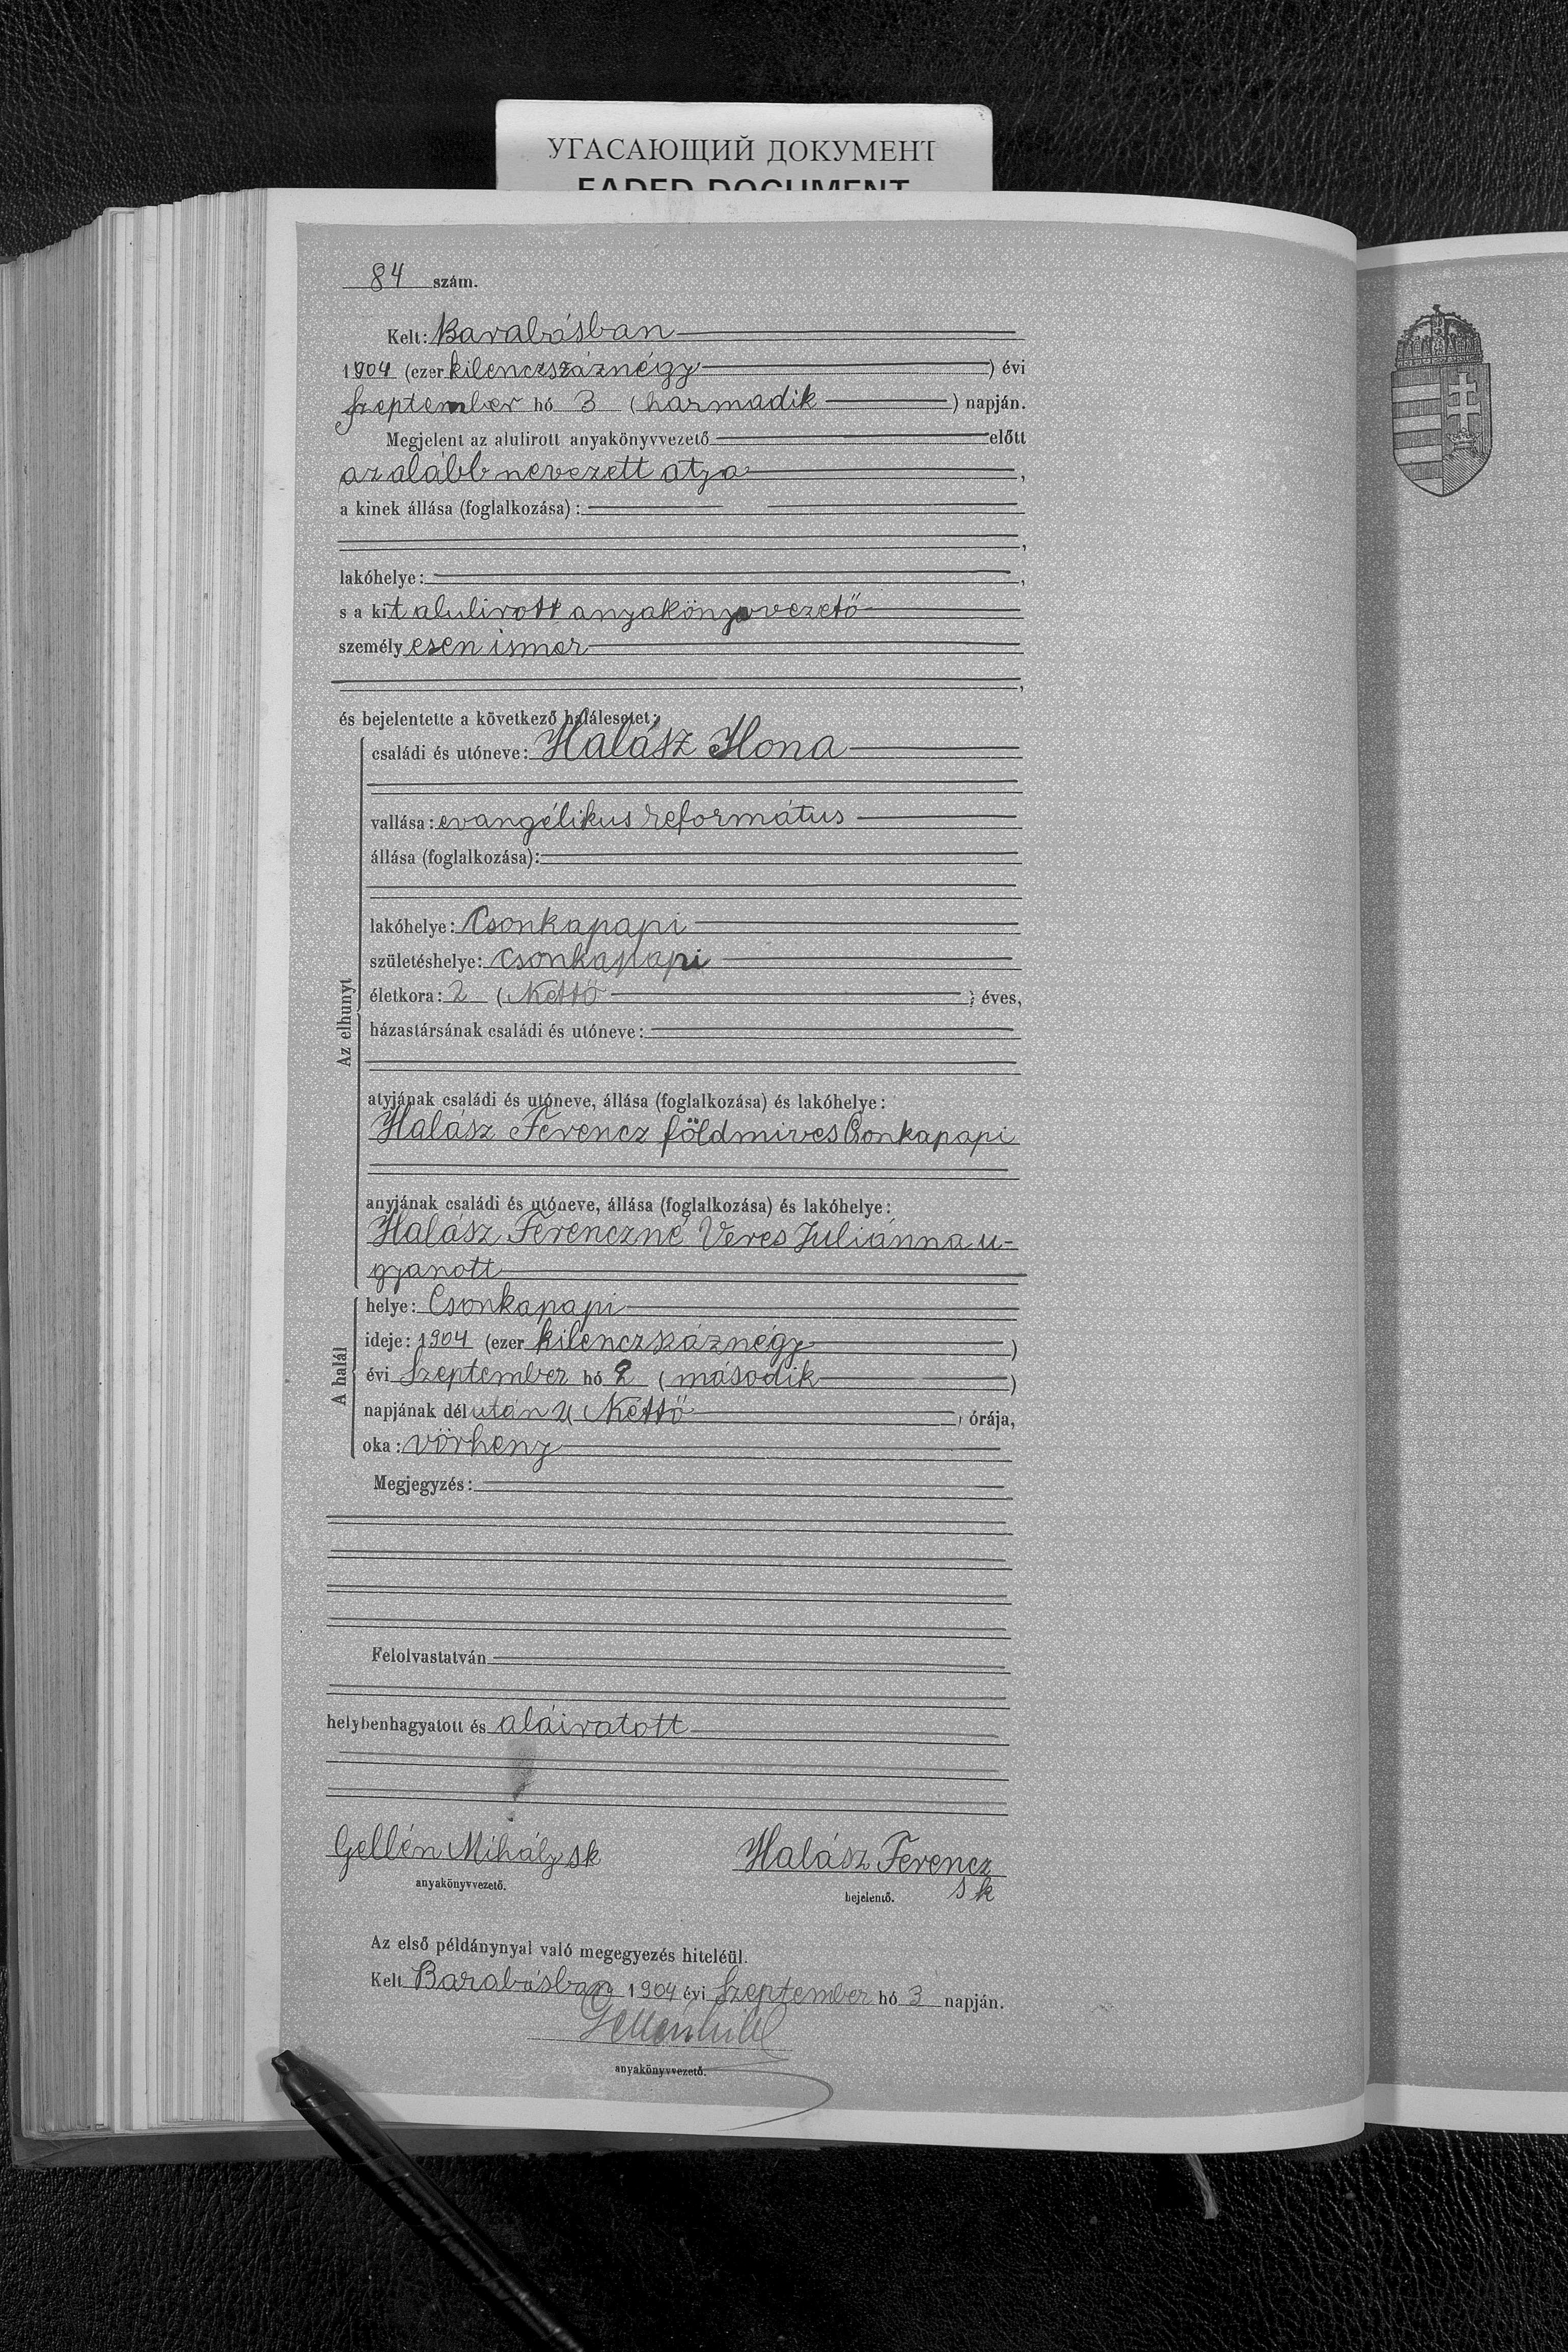 УГАСАЮЩИЙ ДОКУМЕНТ
FADED DOCUMENT
84 szám.
Kelt: Barabásban
1904 (ezer kilenczszáznégy) évi
Szeptember hó 3 (harmadik) napján.
Megjelent az alulirott anyakönyvvezető előtt
az alább nevezett atya,
a kinek állása (foglalkozása):
,
lakóhelye: ,
s a kit alulirott anyakönyvvezető
személyesen ismer
,
és bejelentette a következő halálesetet:
családi és utóneve: Halász Ilona
vallása: evangélikus református
állása (foglalkozása):
lakóhelye: Csonkapapi
születéshelye: Csonkapapi
életkora: 2 (Kettő) éves,
házastársának családi és utóneve:
Az elhunyt
atyjának családi és utóneve, állása (foglalkozása) és lakóhelye:
Halász Ferencz földmives Csonkapapi
anyjának családi és utóneve, állása (foglalkozása) és lakóhelye:
Halász Ferenczné Veres Juliánna u-
gyanott
helye: Csonkapapi
ideje: 1904 (ezer kilenczszáznégy)
A halál
évi Szeptember hó 2 (második)
napjának délután 2 (Kettő) órája,
oka: vörheny
Megjegyzés:
Felolvastatván
helybenhagyatott és aláiratott
Gellén Mihály sk Halász Ferencz
anyakönyvvezető. bejelentő. sk
Az első példánynyal való megegyezés hiteléül.
Kelt Barabásban 1904 évi Szeptember hó 3 napján.
anyakönyvvezető.